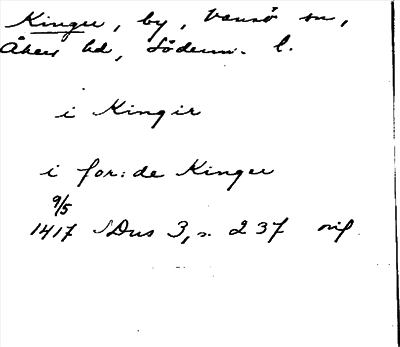 Kinger, by, Vansö sn,
Åkers hd, Söderm. l.
i Kingir
i for: de Kinger
9/5
1417 SDns 3, s. 237 orig